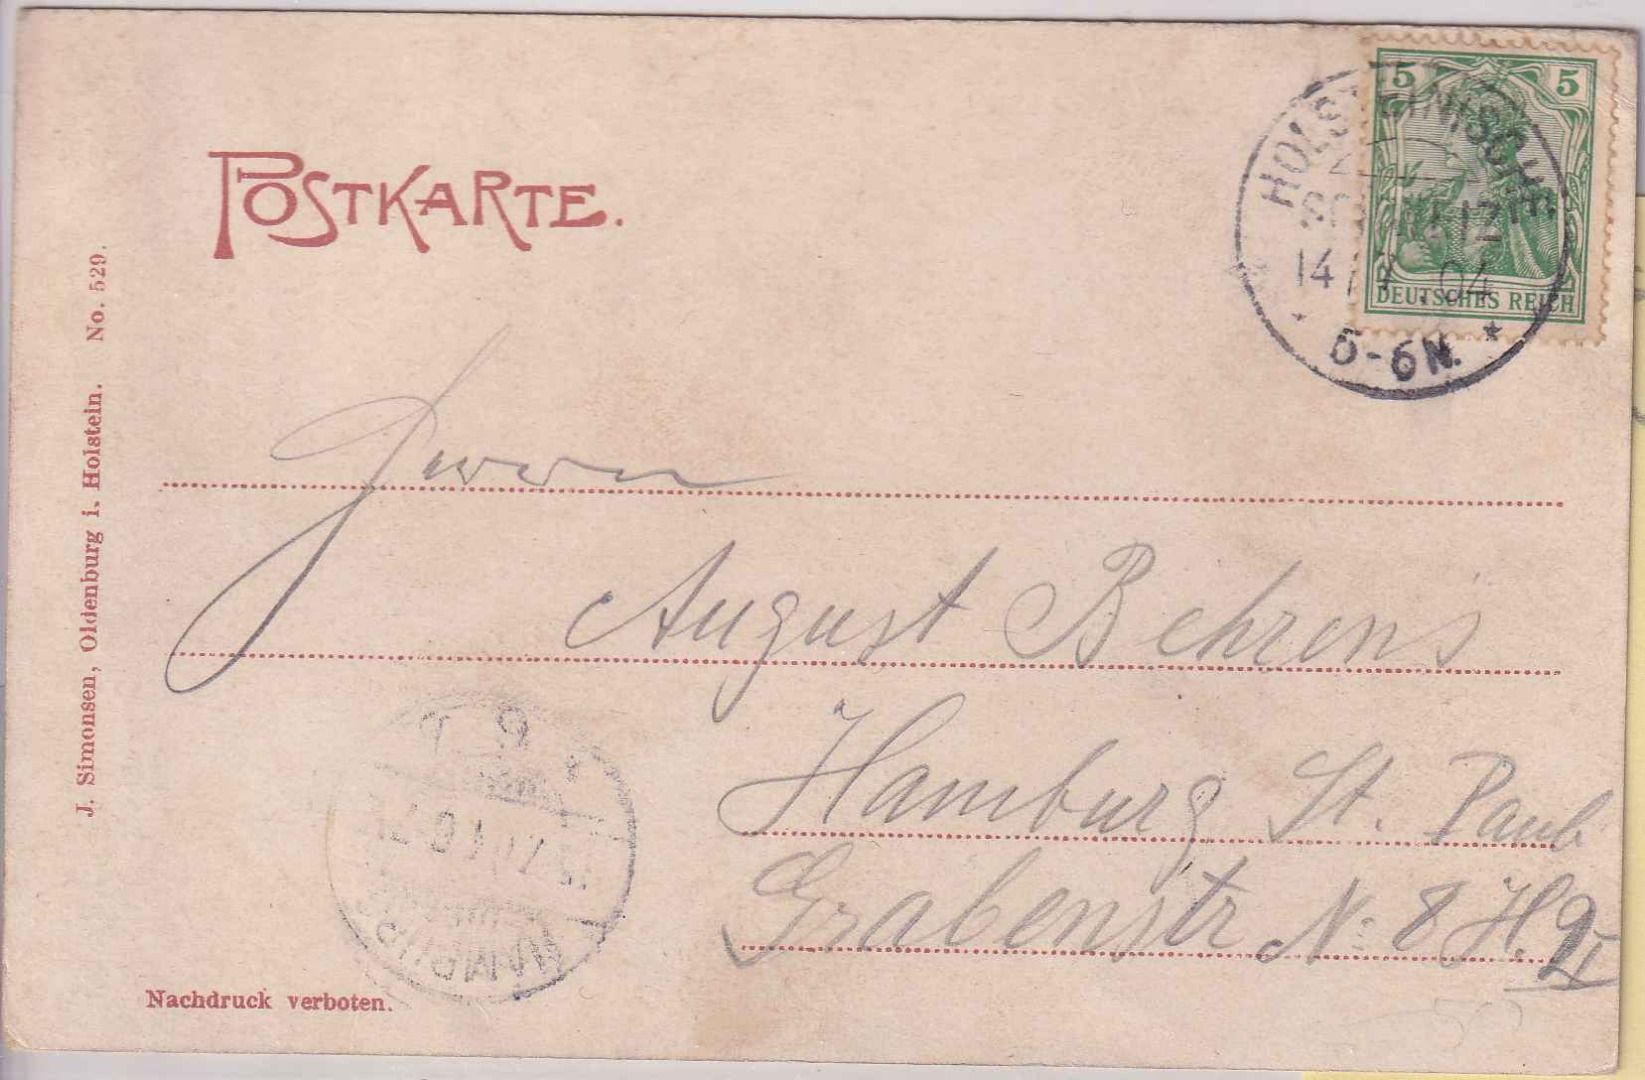 POSTKARTE.
5 5
DEUTSCHES REICH
HOLSTEINISCHE
14 7 04
5-6N.
J. Simonsen, Oldenburg i. Holstein. No. 529.
Herrn
August Behrens
Hamburg St. Pauli
Grabenstr N. 8 H. II
Nachdruck verboten.